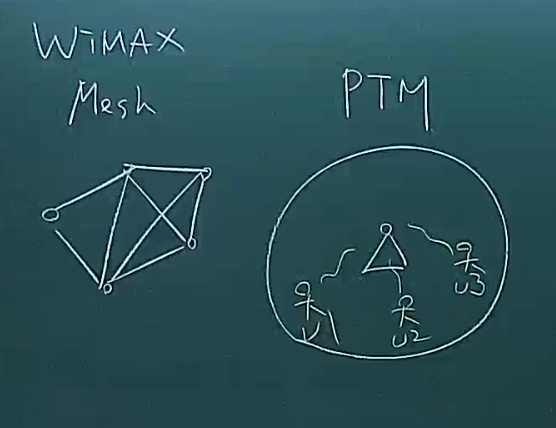 WiMAX
Mesh
PTM
U1
U2
U3